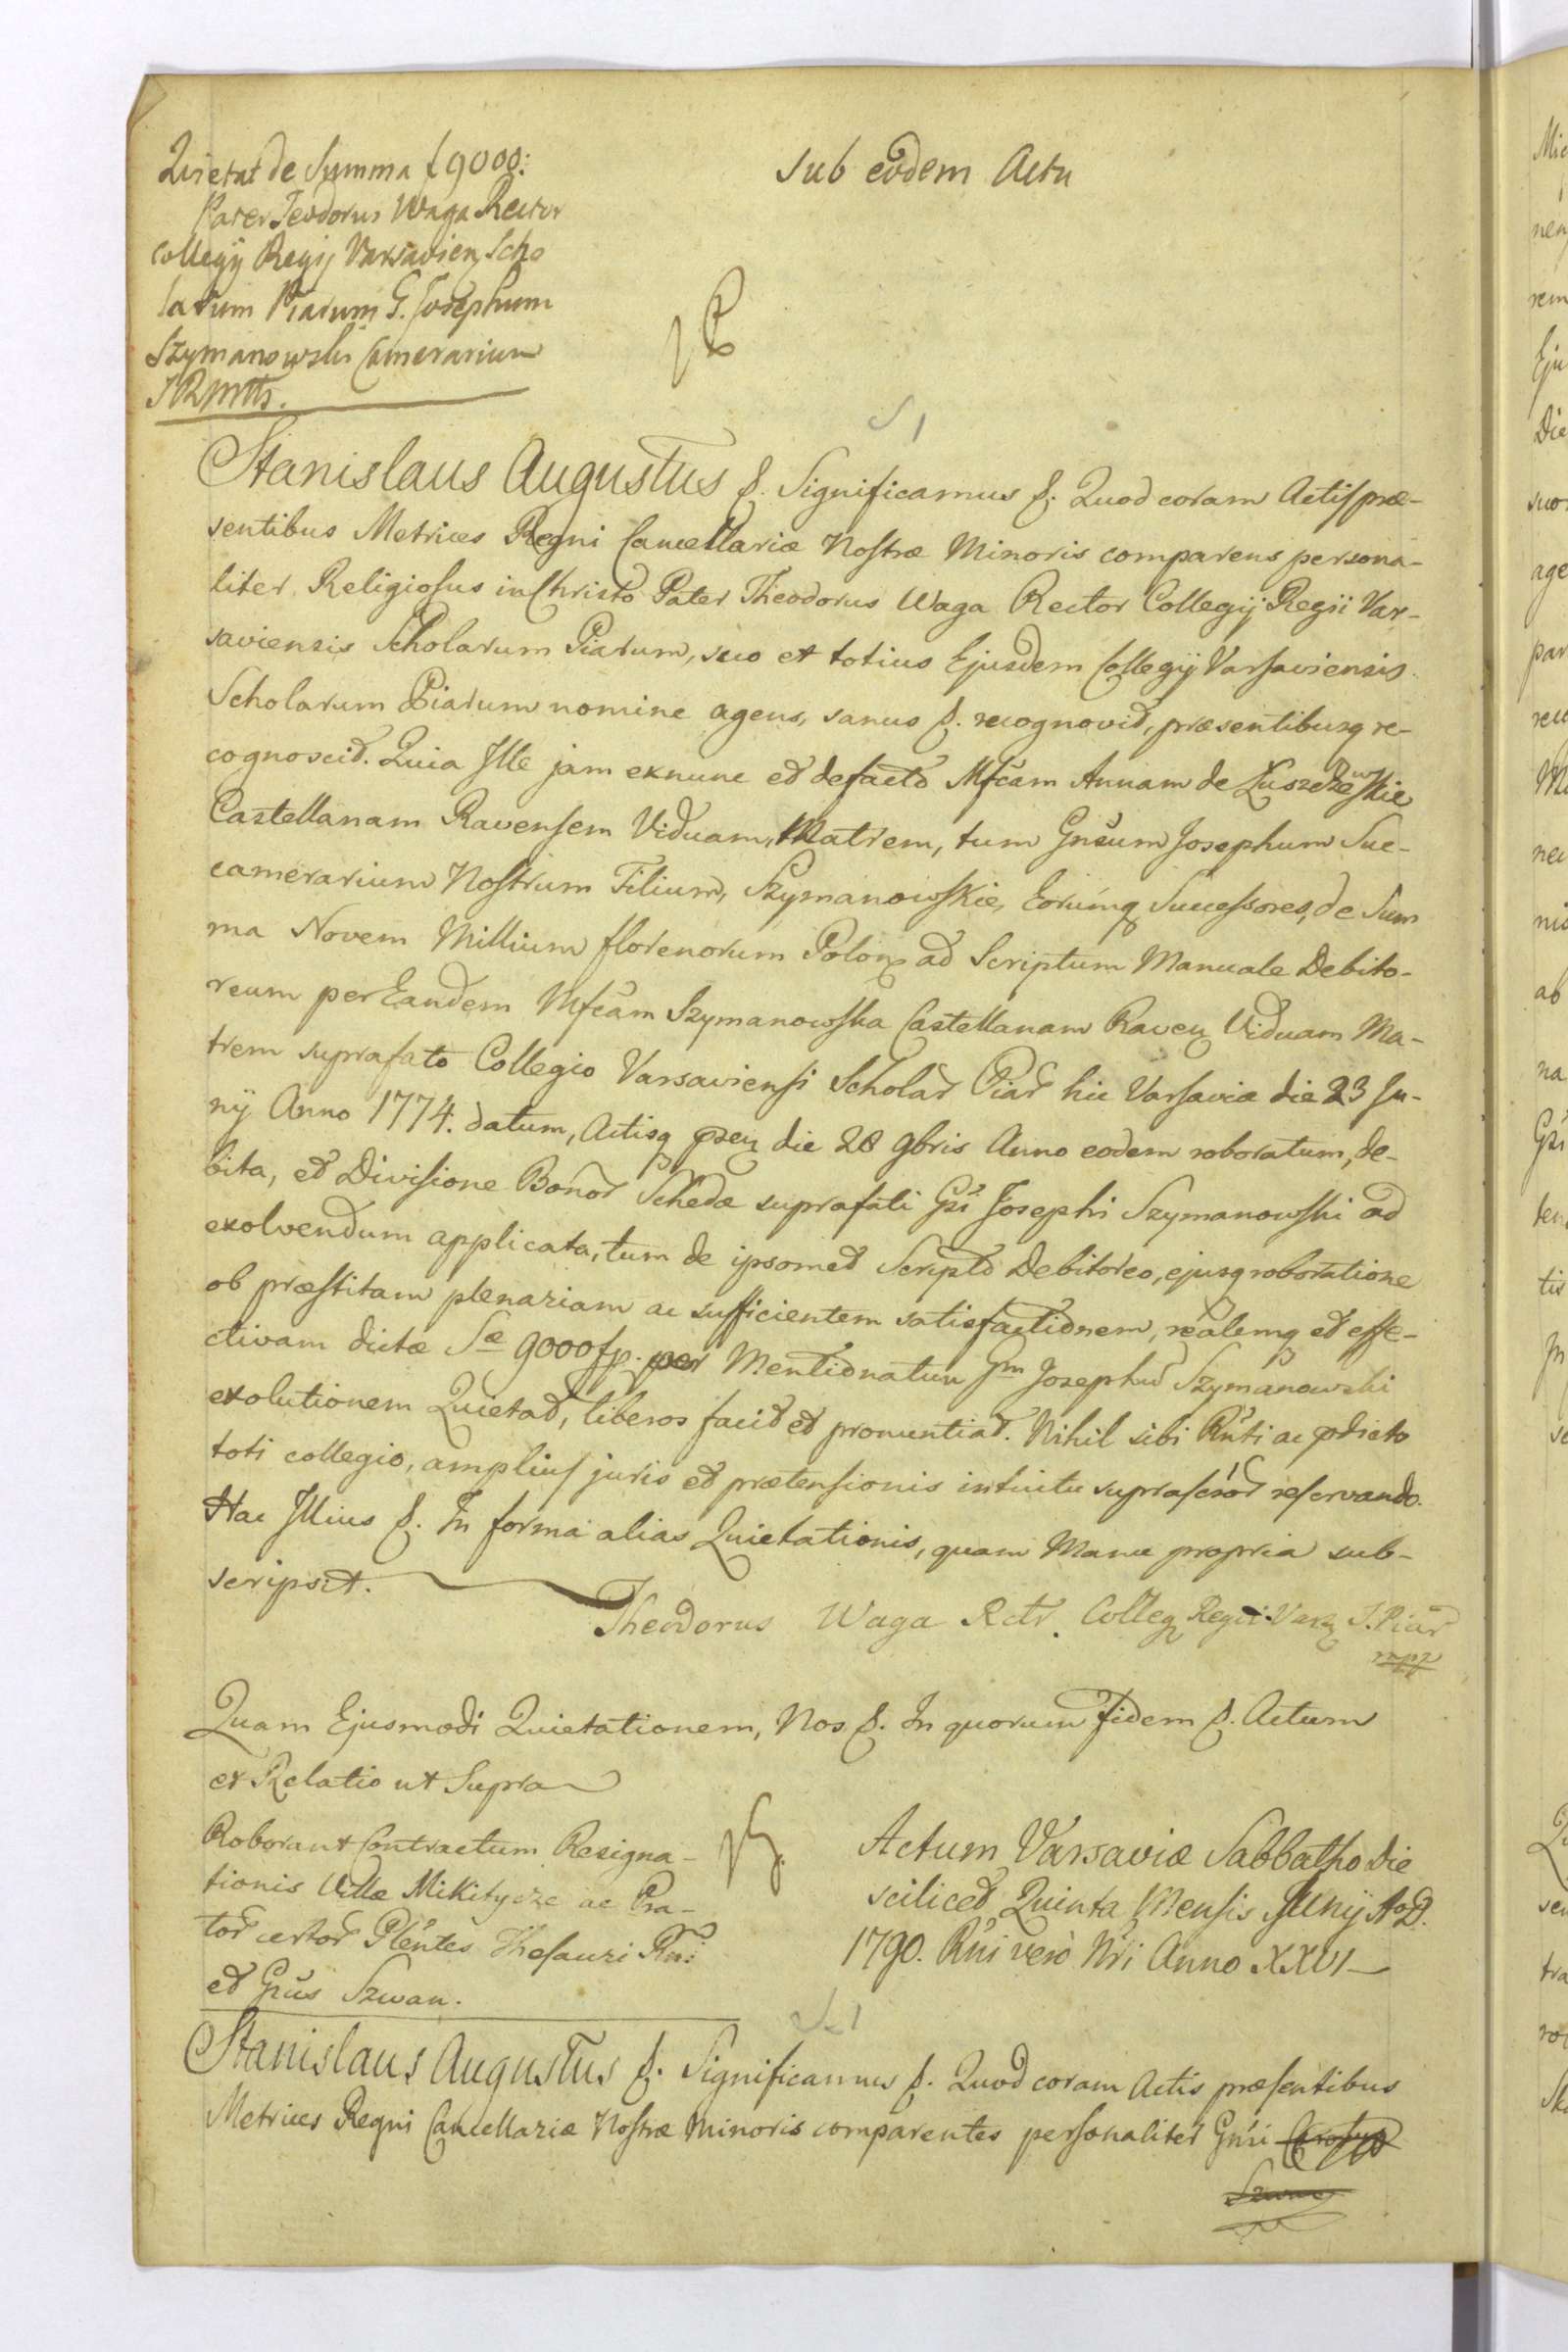 Quietat de Summa f 9000:
Pater Teodorus Waga Rector
Collegij Regij Varsavien Scho
larum Piarum G. Josephum
Szymanowski Camerarium
SRMtts.
Sub eodem Actu
Stanislaus Augustus S. Significamus S. Quod coram Actis præ-
sentibus Metrices Regni Cancellariæ Nostræ Minoris comparens persona-
liter Religiosus in Christo Pater Theodorus Waga Rector Collegij Regii Var-
saviensis Scholarum Piarum, suo et totius Ejusdem Collegij Varsaviensis
Scholarum Piarum nomine agens, sanus S. recognovit, præsentibusq re-
cognoscit. Quia Ille jam exnunc et defacto Mfcam Annam de Łuszczewskie
Castellanam Ravensem Viduam, Matrem, tum Gnsum Josephum Suc-
camerarium Nostrum Filium, Szymanowskie, Eorumq Successores, de Sum
ma Novem Millium florenorum Polon ad Scriptum Manuale Debito-
reum per Eandem Mfcam Szymanowska Castellanam Raven Viduam Ma-
trem suprafato Collegio Varsaviensi Scholar Piar hic Varsaviæ die 23 Ju-
nij Anno 1774. datum, Actisq psen die 28 9bris Anno eodem roboratum, de-
bita, et Divisione Bonor Schedæ suprafati Gsi Josephi Szymanowski ad
exolvendum applicata, tum de ipsomet Scripto Debitoreo, ejusq roboratione
ob præstitam plenariam ac sufficientem satisfactionem, realemq et effe-
ctivam dictæ Sæ 9000 fp. per Mentionatum Gm Josephum Szymanowski
exolutionem Quietat, liberos facit et pronuntiat. Nihil sibi Rnti ac pdicto
toti collegio, amplius juris et prætensionis intuitu suprascror reservando.
Hac Illius S. In forma alias Quietationis, quam Manu propria sub-
scripsit.
Theodorus Waga Rctr. Colleg Regii Vars S. Piar
mpp
Quam Ejusmodi Quietationem, Nos S. In quorum fidem S. Actum
et Relatio ut Supra
Roborant Contractum Resigna-
tionis Villæ Mikitycze ac Pra-
tor certor Plentes Thesauri Rni
et Gsus Szwan.
Actum Varsaviæ Sabbatho Die
scilicet Quinta Mensis Junij AoD.
1790. Rni vero Nri Anno XXVI
Stanislaus Augustus S. Significamus S. Quod coram Actis præsentibus
Metrices Regni Cancellariæ Nostræ Minoris comparentes personaliter Gnsi